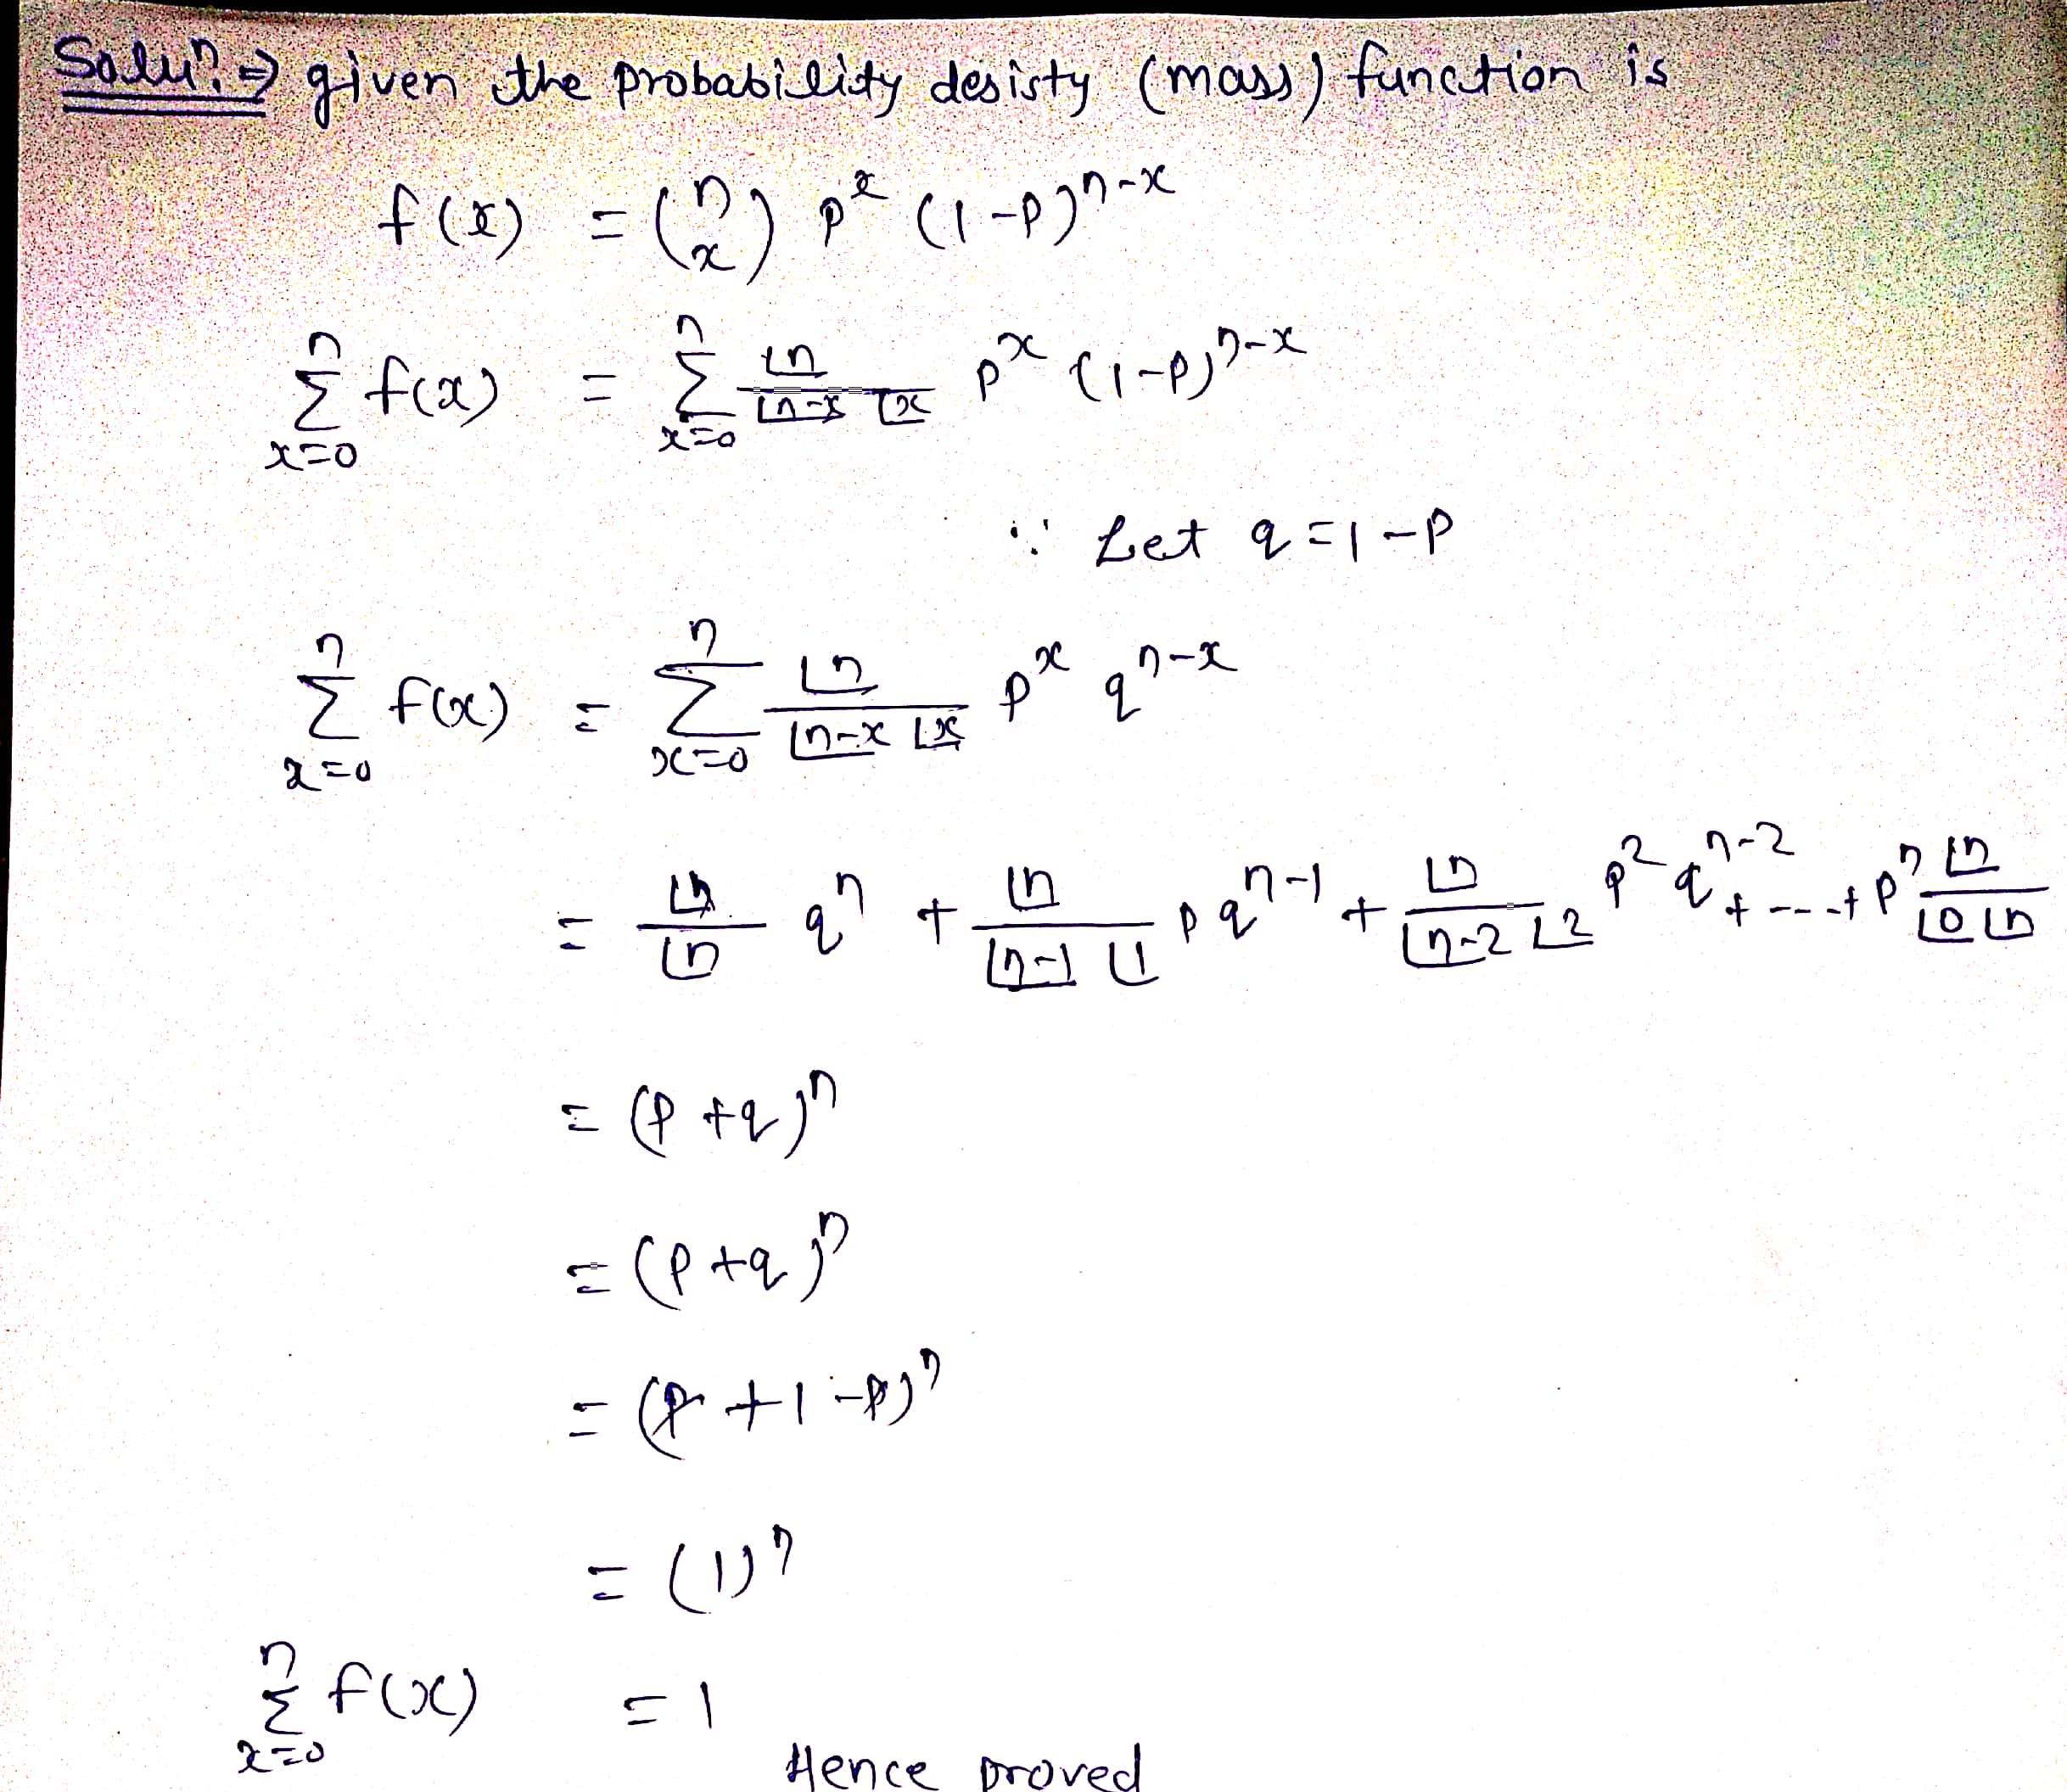 Solun ⇒ given the probability desisty (mass) function is
f(x) = (n x) p^x (1-p)^{n-x}
∑_{x=0}^{n} f(x) = ∑_{x=0}^{n} ⌊n / ⌊n-x ⌊x p^x (1-p)^{n-x}
∵ Let q = 1-p
∑_{x=0}^{n} f(x) = ∑_{x=0}^{n} ⌊n / ⌊n-x ⌊x p^x q^{n-x}
= ⌊n / ⌊n q^n + ⌊n / ⌊n-1 ⌊1 p q^{n-1} + ⌊n / ⌊n-2 ⌊2 p^2 q^{n-2} + ---+ p^n ⌊n / ⌊0 ⌊n
= (p+q)^n
= (p+q)^n
= (p+1-p)^n
= (1)^n
∑_{x=0}^{n} f(x) = 1
Hence proved